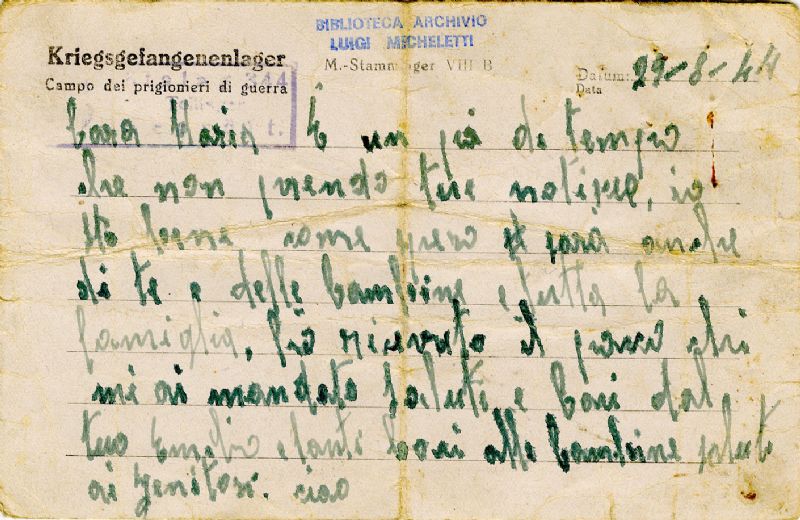 BIBLIOTECA ARCHIVIO
LUIGI MICHELETTI
Kriegsgefangenenlager
M.-Stammlager VIII B
Datum: 29-8-44
Campo dei prigionieri di guerra
Data
344
Cara Maria È un po di tempo
che non prendo tue notizie, io
sto bene come spero sarà anche
di te e delle bambine e tutta la
famiglia, ho ricevuto il pacco che
mi ai mandato saluti e baci dal
tuo Emilio e tanti baci alle bambine saluti
ai genitori. ciao